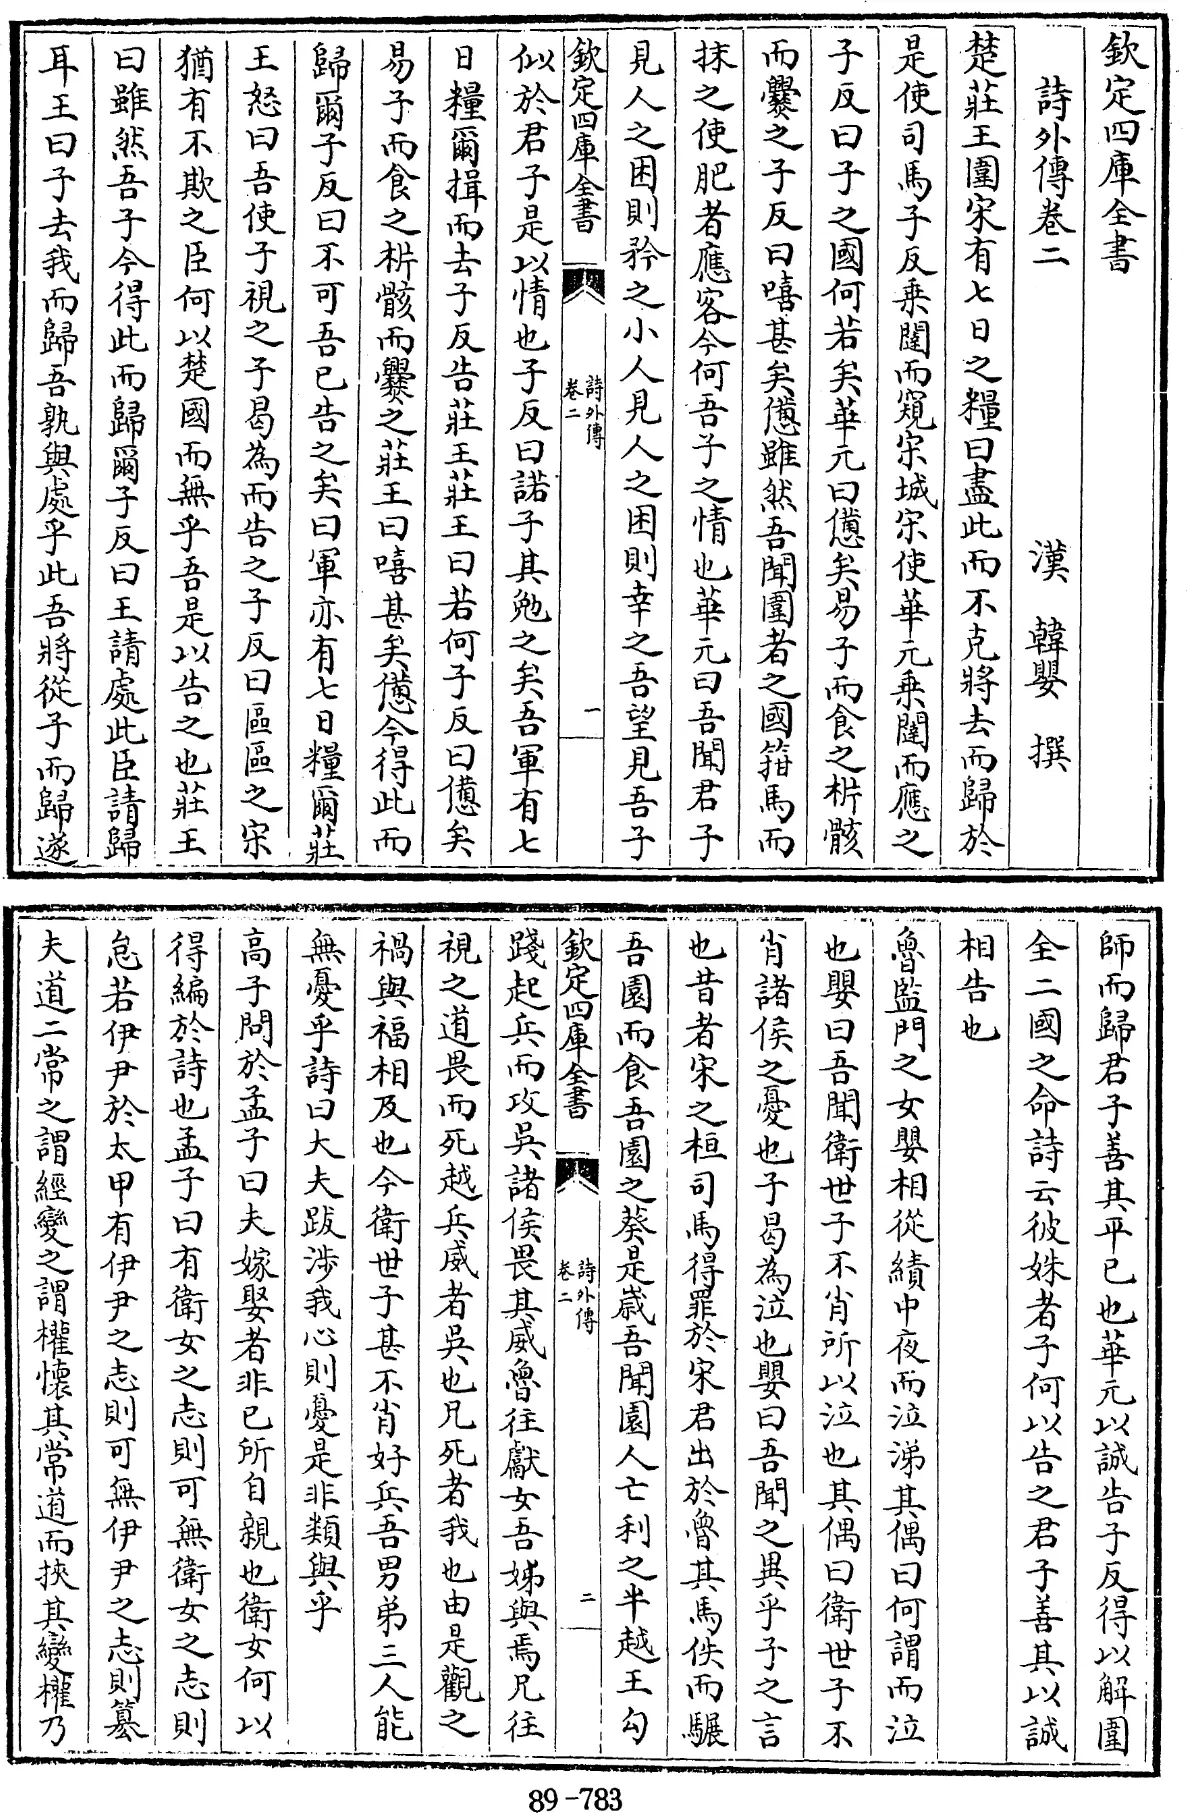 欽定四庫全書
詩外傳卷二
漢 韓嬰 撰
楚莊王圍宋有七日之糧曰盡此而不克將去而歸於
是使司馬子反乗闉而窺宋城宋使華元乗闉而應之
子反曰子之國何若矣華元曰憊矣易子而食之析骸
而爨之子反曰嘻甚矣憊雖然吾聞圍者之國箝馬而
抹之使肥者應客今何吾子之情也華元曰吾聞君子
見人之困則矜之小人見人之困則幸之吾望見吾子
欽定四庫全書
詩外傳
卷二
一
似於君子是以情也子反曰諾子其勉之矣吾軍有七
日糧爾揖而去子反告莊王莊王曰若何子反曰憊矣
易子而食之析骸而爨之莊王曰嘻甚矣憊今得此而
歸爾子反曰不可吾已告之矣曰軍亦有七日糧爾莊
王怒曰吾使子視之子曷為而告之子反曰區區之宋
猶有不欺之臣何以楚國而無乎吾是以告之也莊王
曰雖然吾子今得此而歸爾子反曰王請處此臣請歸
耳王曰子去我而歸吾孰與處乎此吾將從子而歸遂
師而歸君子善其平已也華元以誠告子反得以解圍
全二國之命詩云彼姝者子何以告之君子善其以誠
相告也
魯監門之女嬰相從績中夜而泣涕其偶曰何謂而泣
也嬰曰吾聞衛世子不肖所以泣也其偶曰衛世子不
肖諸侯之憂也子曷為泣也嬰曰吾聞之異乎子之言
也昔者宋之桓司馬得罪於宋君出於魯其馬佚而騪
吾園而食吾園之葵是歲吾聞園人亡利之半越王勾
欽定四庫全書
詩外傳
卷二
二
踐起兵而攻吳諸侯畏其威魯往獻女吾姊與焉兄往
視之道畏而死越兵威者吳也兄死者我也由是觀之
禍與福相及也今衛世子甚不肖好兵吾男弟三人能
無憂乎詩曰大夫跋涉我心則憂是非類與乎
高子問於孟子曰夫嫁娶者非己所自親也衛女何以
得編於詩也孟子曰有衛女之志則可無衛女之志則
怠若伊尹於太甲有伊尹之志則可無伊尹之志則簒
夫道二常之謂經變之謂權懷其常道而挾其變權乃
89-783